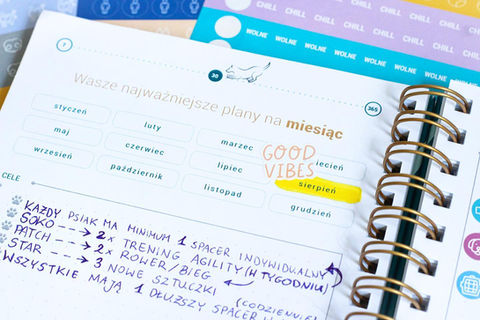 CHILL CHILL CHILL CHILL CHILL CHILL
CHILL CHILL CHILL
WOLNE WOLNE WOLNE WOLNE WOLNE WOLNE
7
30
365
Wasze najważniejsze plany na miesiąc
styczeń luty marzec iecień
maj czerwiec lipiec sierpień
wrzesień październik listopad grudzień
GOOD
VIBES
CELE
KAŻDY PSIAK MA MINIMUM 1 SPACER INDYWIDUALNY
SOKO --→ 2x TRENING AGILITY (W TYGODNIU)
PATCH --→ 2x ROWER/BIEG
STAR --→ 3 NOWE SZTUCZKI
WSZYSTKIE MAJĄ 1 DŁUŻSZY SPACER (CODZIENNIE